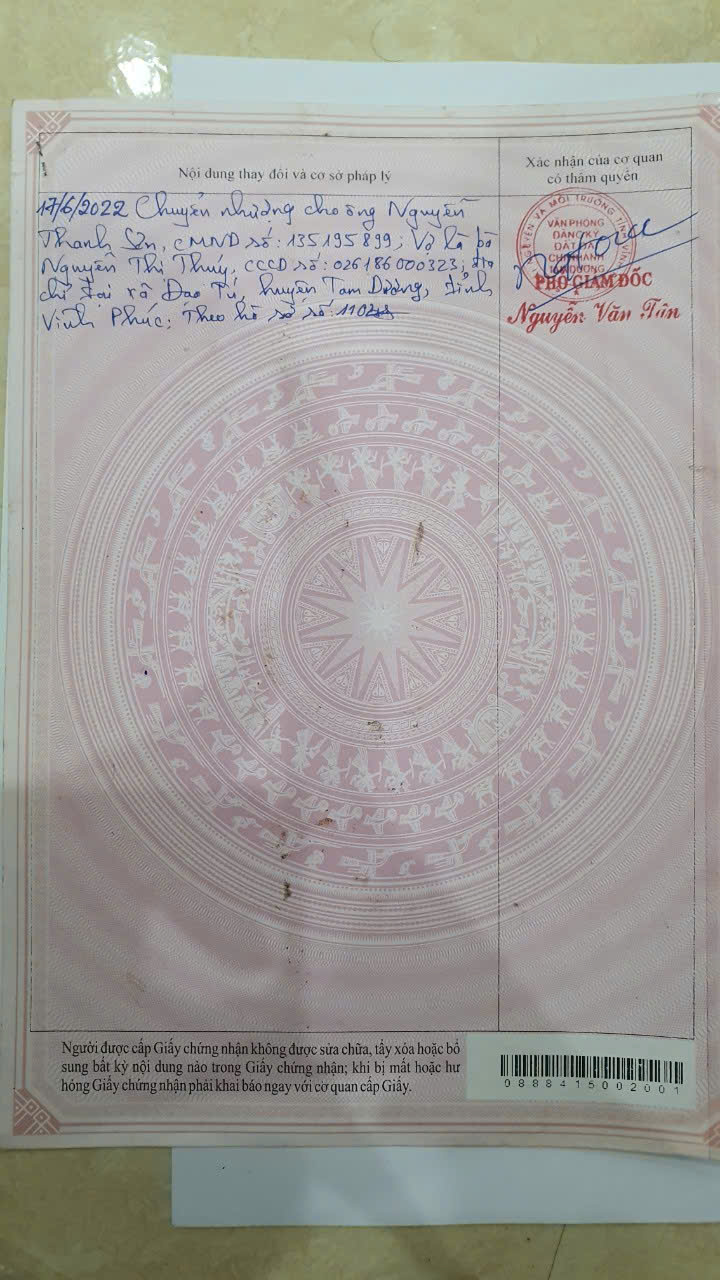 Nội dung thay đổi và cơ sở pháp lý
Xác nhận của cơ quan
có thẩm quyền
17/6/2022 Chuyển nhượng cho ông Nguyễn
Thanh Sơn, CMND số: 135195899; Vợ là bà
Nguyễn Thị Thuý, CCCD số: 026186000323; địa
chỉ tại xã Đạo Tú, huyện Tam Dương, tỉnh
Vĩnh Phúc; Theo hồ sơ số: 110
VĂN PHÒNG
ĐĂNG KÝ
ĐẤT ĐAI
CHI NHÁNH
TAM DƯƠNG
PHÓ GIÁM ĐỐC
Nguyễn Văn Tân
Người được cấp Giấy chứng nhận không được sửa chữa, tẩy xóa hoặc bổ
sung bất kỳ nội dung nào trong Giấy chứng nhận; khi bị mất hoặc hư
hỏng Giấy chứng nhận phải khai báo ngay với cơ quan cấp Giấy.
0888415002001